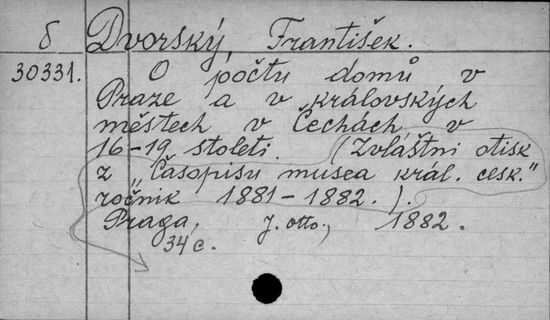 δ Dvorský, František.
30331. O počtu domů v
Praze a v královských
městech v Čechách v
16-19 stoleti. (Zvláštni otisk
z „Časopisu musea král. cesk."
ročnik 1881-1882.).
Praga, J. otto., 1882.
34 c.